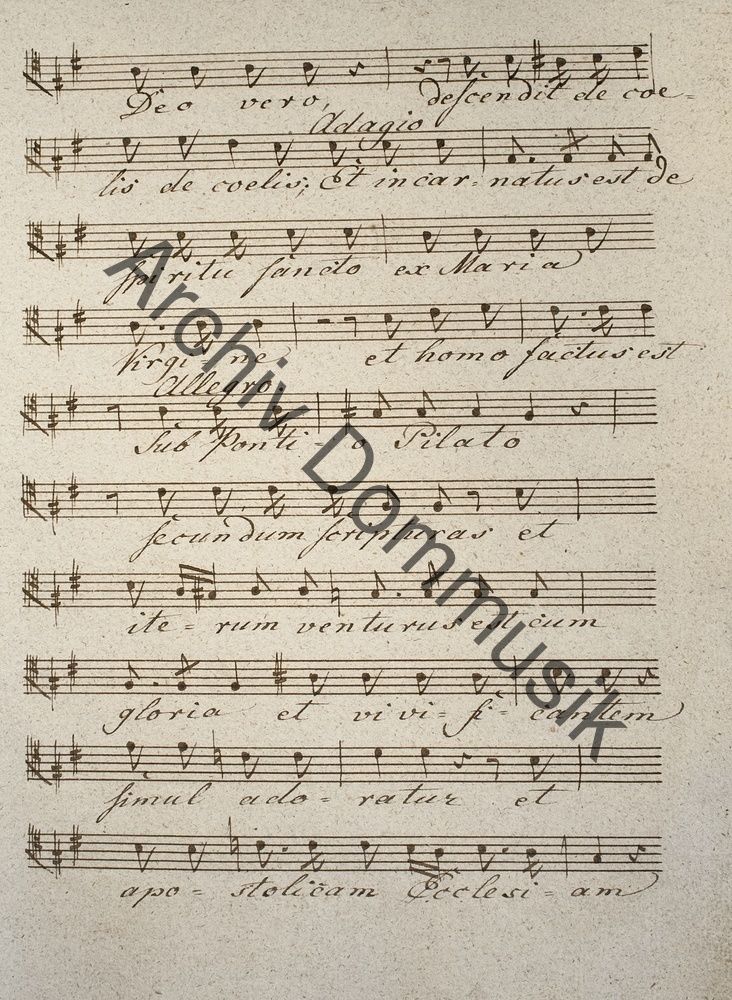 Deo vero, descendit de coe=
Adagio
lis de coelis; Et incar=natus est de
Spiritu sancto ex Maria
Virgi ne et homo factus est
Allegro.
Sub Ponti=o Pilato
secundum scripturas et
ite=rum venturus est cum
gloria et vivi=fi=cantem
simul ado=ratur et
apo=stolicam Ecclesi=am
Archiv Dommusik